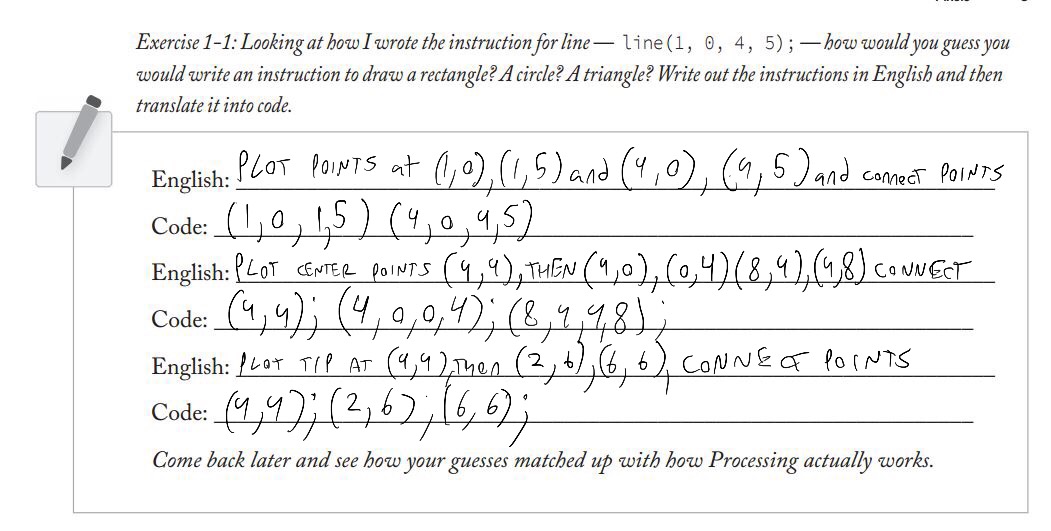 Exercise 1-1: Looking at how I wrote the instruction for line — line(1, 0, 4, 5); —how would you guess you
would write an instruction to draw a rectangle? A circle? A triangle? Write out the instructions in English and then
translate it into code.
English: PLOT POINTS at (1,0),(1,5) and (4,0), (4,5) and connect POINTS
Code: (1,0,1,5) (4,0,4,5)
English: PLOT CENTER POINTS (4,4), THEN (4,0),(0,4)(8,4),(4,8) CONNECT
Code: (4,4); (4,0,0,4); (8,4,4,8);
English: PLOT TIP AT (4,4),Then (2,6),(6,6), CONNECT POINTS
Code: (4,4); (2,6); (6,6);
Come back later and see how your guesses matched up with how Processing actually works.